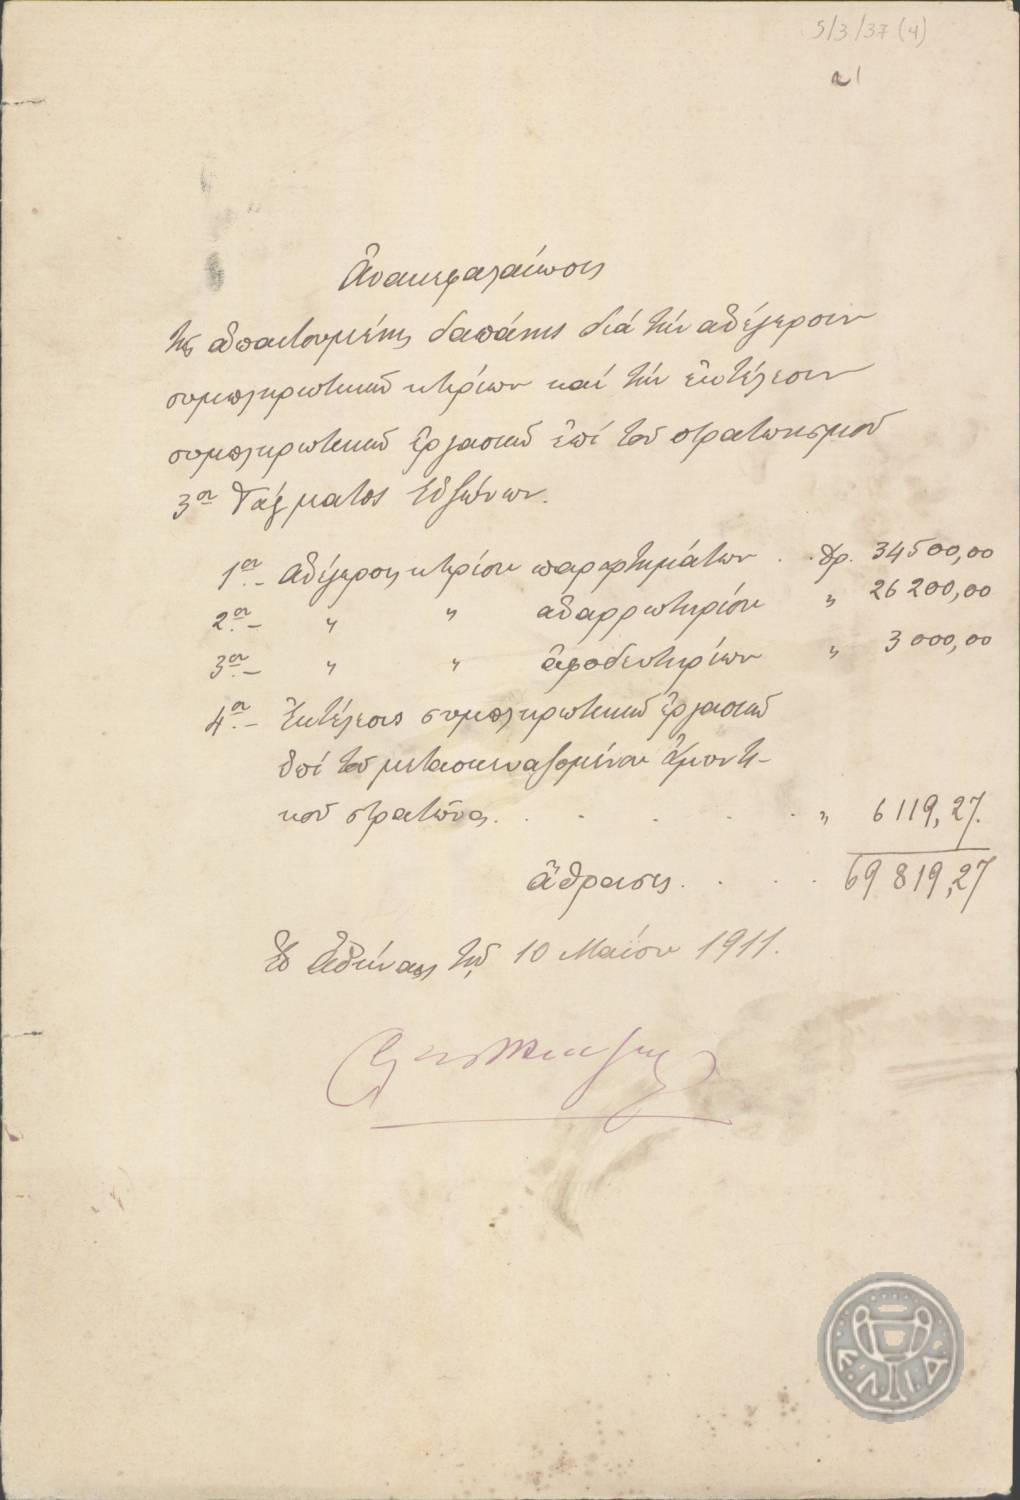 5/3/37 (4)
Ἀνακεφαλαίωσις
τῆς ἀπαιτουμένης δαπάνης διά τήν ἀνέγερσιν
συμπληρωτικῶν κτιρίων καί τήν ἐκτέλεσιν
συμπληρωτικῶν ἐργασιῶν ἐπί τοῦ στρατωνισμοῦ
3ου Τάγματος Εὐζώνων.
1ον.- Ἀνέγερσις κτιρίου παραρτημάτων . . Δρ. 34500,00
2ον.- " " ἀναρρωτηρίου " 26200,00
3ον.- " " ἀφοδευτηρίων " 3000,00
4ον.- Ἐκτέλεσις συμπληρωτικῶν ἐργασιῶν
ἐπί τοῦ μετασκευαζομένου
κοῦ στρατῶνος. . . . . . " 6119,27.
ἄθροισις. . . . 69819,27
Ἐν Ἀθήναις τῇ 10 Μαΐου 1911.
Ε.Λ.Ι.Α